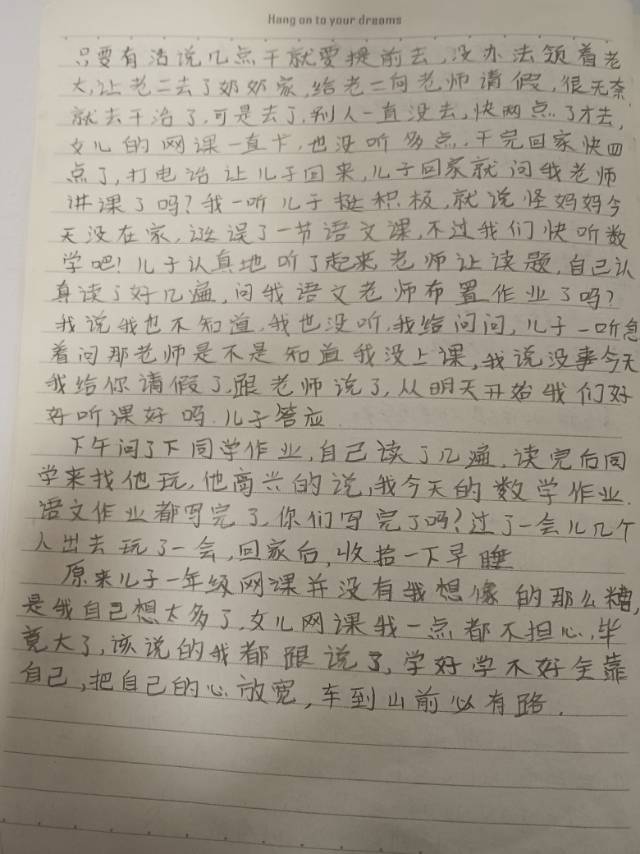 Hang on to your dreams
只要有活说几点干就要提前去,没办法领着老
大,让老二去了奶奶家,给老二向老师请假,很无奈
就去干活了,可是去了,别人一直没去,快两点了才去,
女儿的网课一直卡,也没听多点,干完回家快四
点了,打电话让儿子回来,儿子回家就问我老师
讲课了吗?我一听儿子挺积极,就说怪妈妈今
天没在家,耽误了一节语文课,不过我们快听数
学吧!儿子认真地听了起来,老师让读题,自己认
真读了好几遍,问我语文老师布置作业了吗?
我说我也不知道,我也没听,我给问问,儿子一听急
着问那老师是不是知道我没上课,我说没事今天
我给你请假了,跟老师说了,从明天开始我们好
好听课好吗.儿子答应.
下午问了下同学作业,自己读了几遍,读完后同
学来找他玩,他高兴的说,我今天的数学作业.
语文作业都写完了,你们写完了吗?过了一会儿几个
人出去玩了一会,回家后,收拾一下早睡
原来儿子一年级网课并没有我想像的那么糟,
是我自己想太多了,女儿网课我一点都不担心,毕
竟大了,该说的我都跟说了,学好学不好全靠
自己,把自己的心放宽,车到山前必有路.